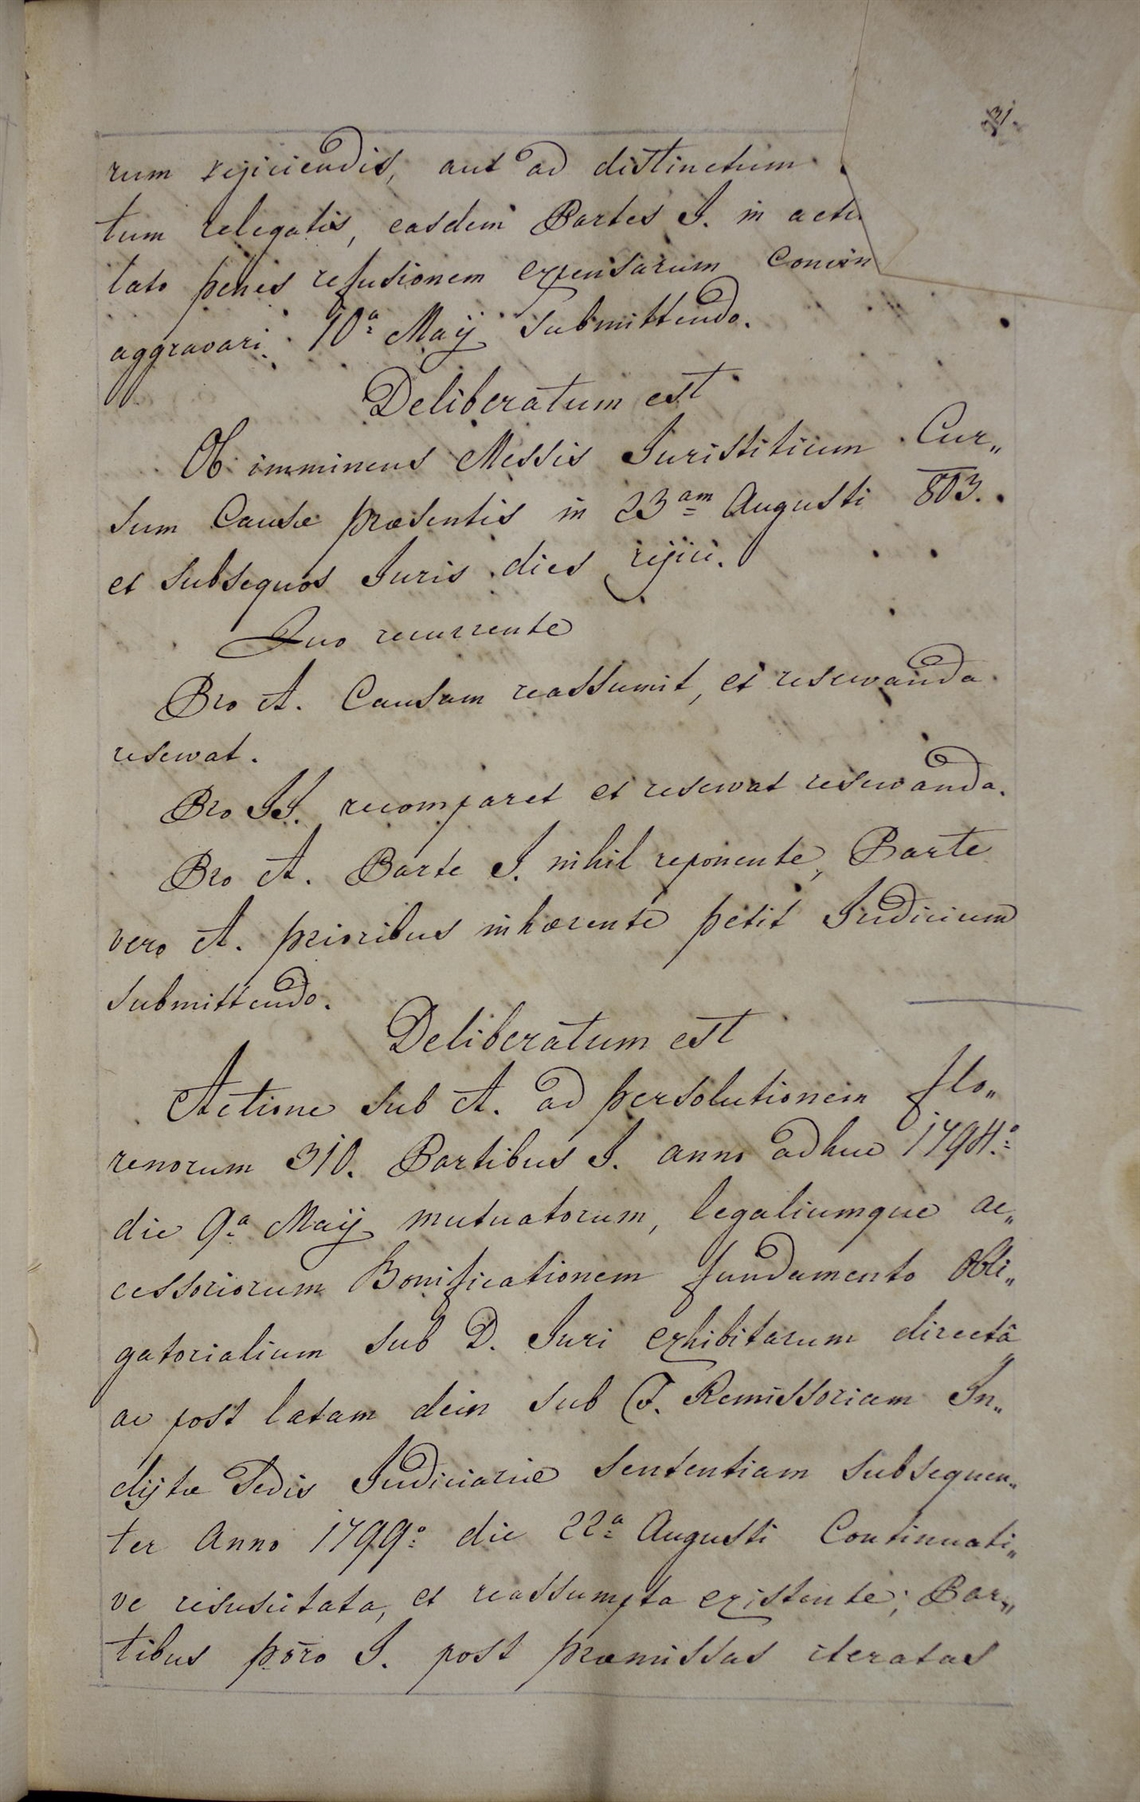 31.
rum rejiciendis, aut ad distinctum
tum relegatis, easdem Partes I. in actu
tato penes refusionem expensarum Convin
aggravari 10ª Maij Submittendo.
Deliberatum est
Ob imminens Messis Juristitium Cur„
sum Causæ præsentis in 23am Augusti 803.
et subsequos Juris dies rejici.
Quo recurrente
Pro A. Causam reassumit, et reservanda
reservat.
Pro II. recomparet et reservat reservanda.
Pro A. Parte I. nihil reponente, Parte
vero A. prioribus inhærente petit Judicium
submittendo.
Deliberatum est
Actione sub A. ad persolutionem flo„
renorum 310. Partibus I. anno adhuc 1794º
die 9ª Maij mutuatorum, legaliumque ac„
cessoriorum Bonificationem fundamento Obli„
gatorialium sub D. Juri exhibitarum directâ
ac post latam dein sub F. Remissoriam In„
clÿtæ Sedis Judiciariæ sententiam subsequen„
ter Anno 1799º die 22ª Augusti Continuati„
ve resuscitata, et reassumpta existente; Par„
tibus porro I. post præmissas iteratas